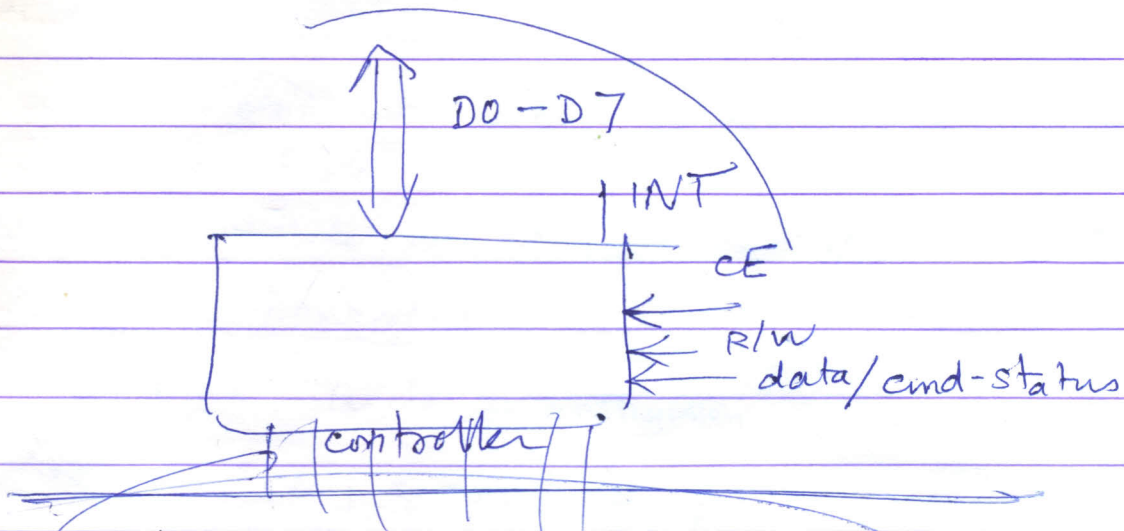 D0-D7
INT
CE
R/W
data/cmd-status
controller